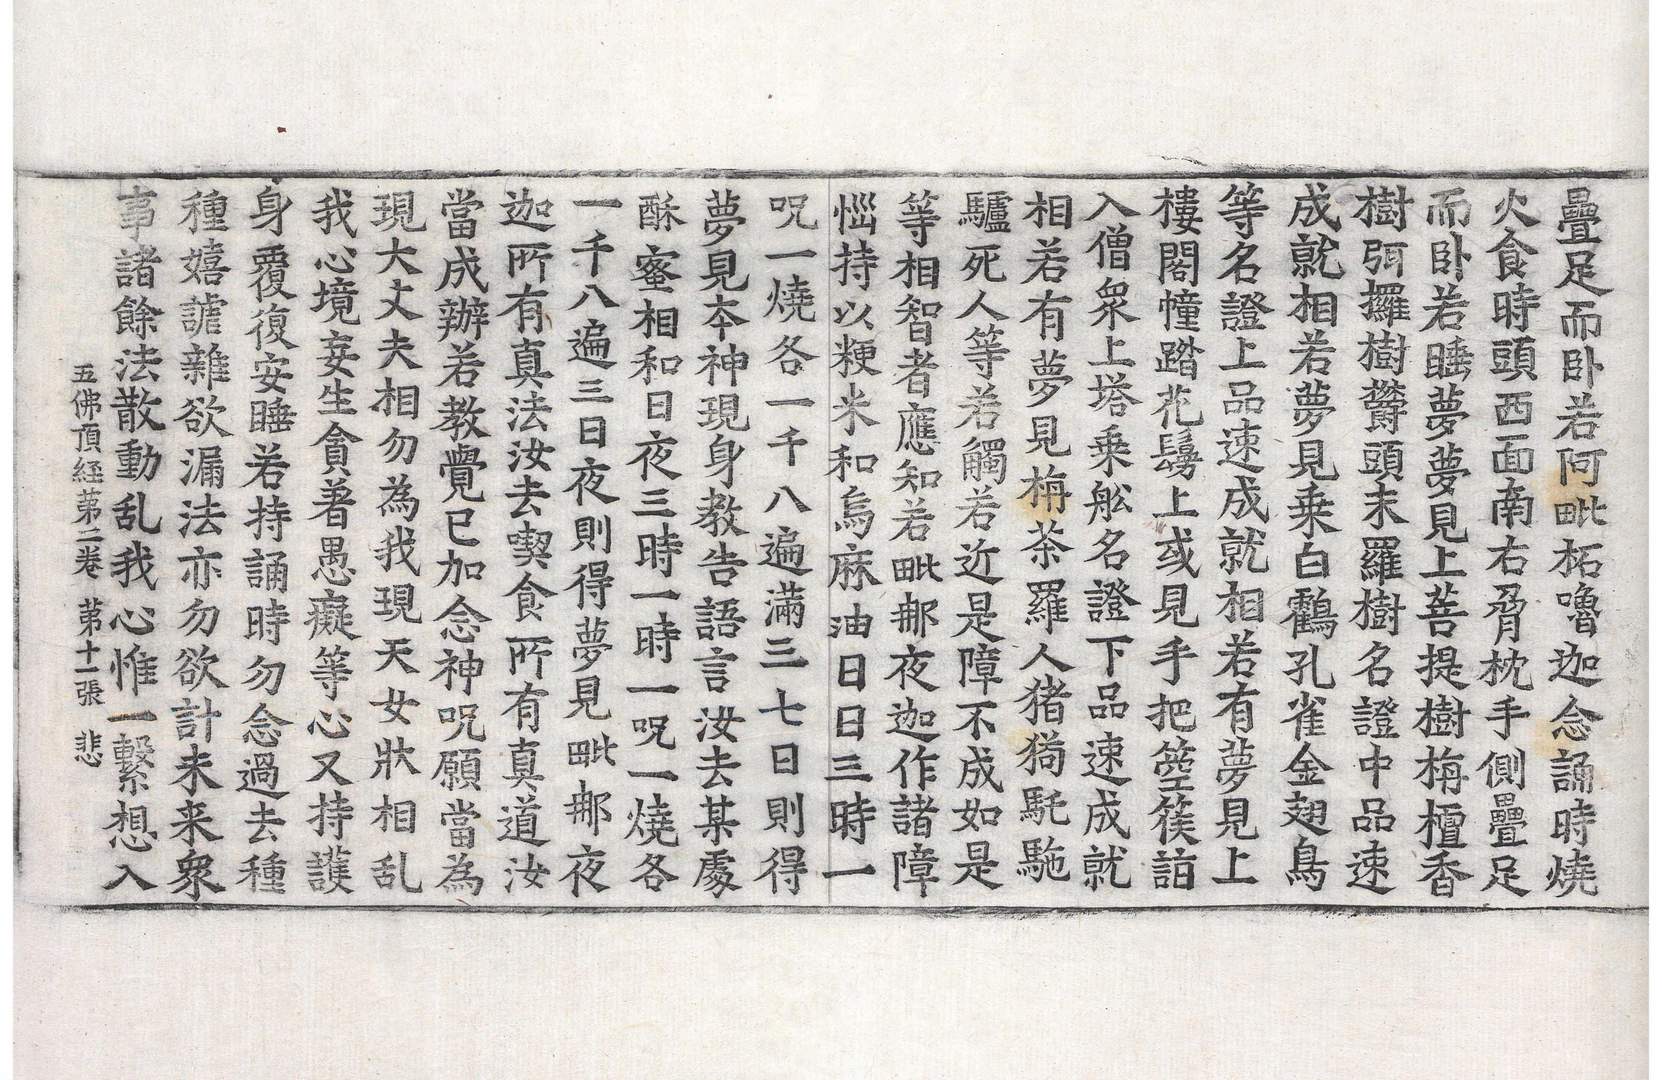 疊足而卧若阿毗柘嚕迦念誦時燒
火食時頭西面南右脅枕手側疊足
而卧若睡夢夢見上菩提樹栴檀香
樹弭攞樹欝頭末羅樹名證中品速
成就相若夢見乗白鸖孔雀金翅鳥
等名證上品速成就相若有夢見上
樓閣幢踏花鬘上或見手把箜篌詣
入僧衆上塔乗舩名證下品速成就
相若有夢見栴荼羅人猪狗駞
驢死人等若觸若近是障不成如是
等相智者應知若毗那夜迦作諸障
惱持以粳米和烏麻油日日三時一
呪一燒各一千八遍滿三七日則得
夢見本神現身教告語言汝去某處
酥蜜相和日夜三時一時一呪一燒各
一千八遍三日夜則得夢見毗那夜
迦所有真法汝去喫食所有真道汝
當成辦若教覺已加念神呪願當為
現大丈夫相勿為我現天女狀相乱
我心境妄生貪著愚癡等心又持護
身覆復安睡若持誦時勿念過去種
種嬉謔雜欲漏法亦勿欲計未来衆
事諸餘法散動乱我心惟一繫想入
五佛頂経第二卷 第十一張 悲